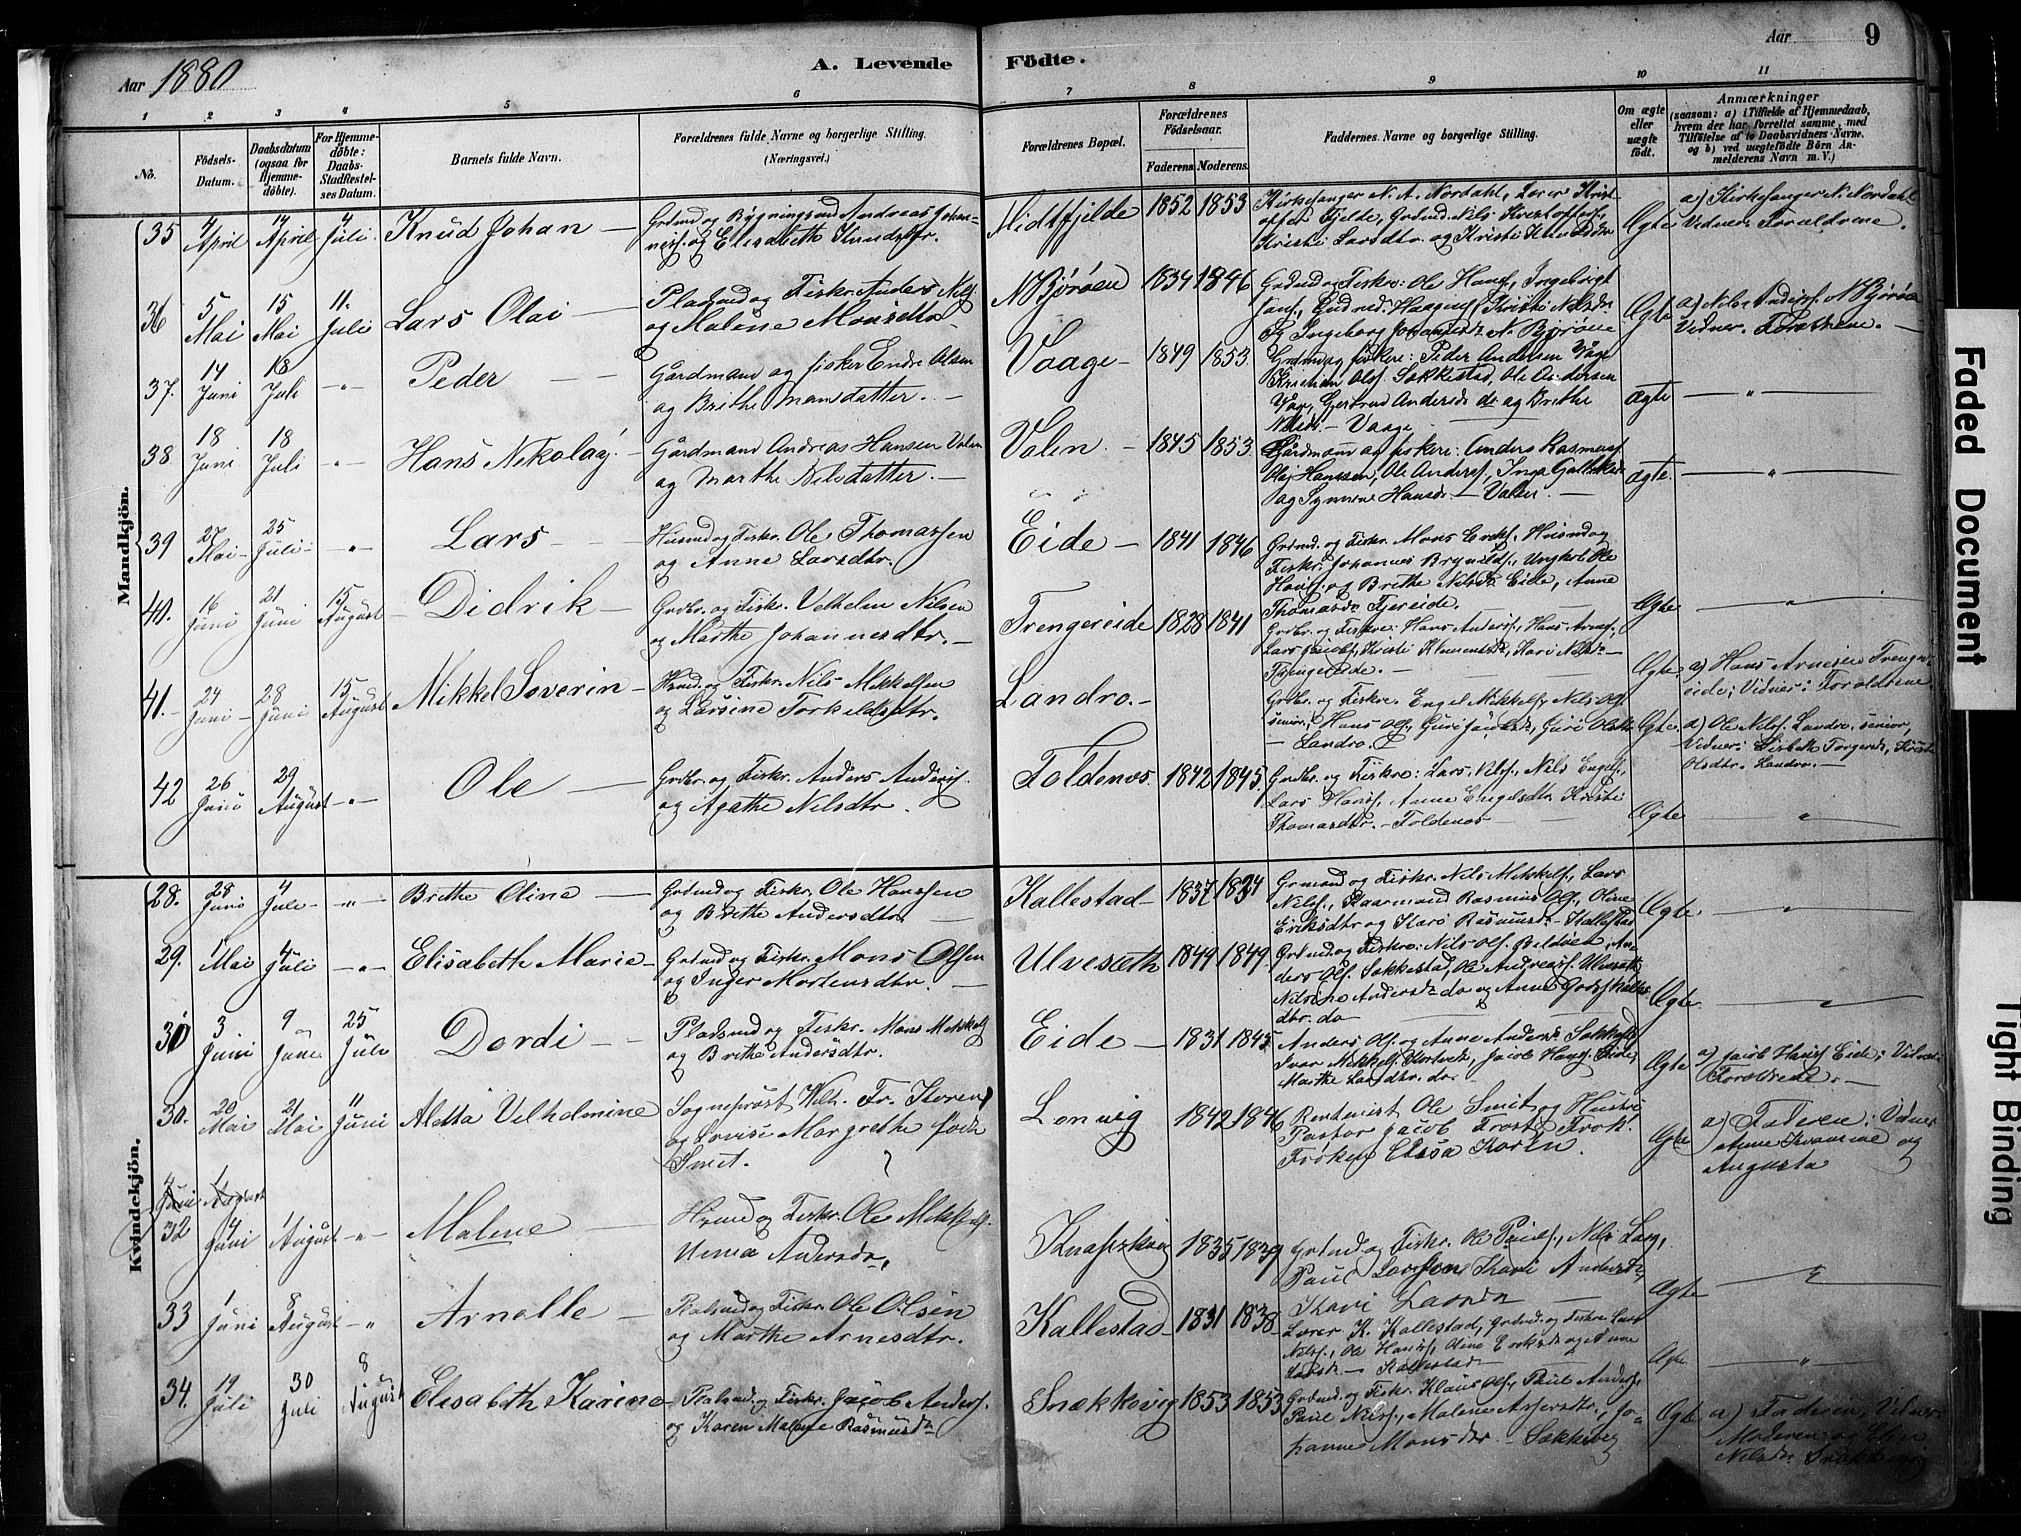 Aar 1880
A. Levende Födte.
Aar 9
1 2 3 4 5 6 7 8 9 10 11
No.
Födsels-Datum.
Daabsdatum (ogsaa for Hjemmedöbte).
For Hjemmedöbte: Daabs-Stadfestelses Datum.
Barnets fulde Navn.
Forældrenes fulde Navne og borgerlige Stilling. (Næringsvei.)
Forældrenes Bopæl.
Forældrenes Födselsaar.
Faderens. Moderens.
Faddernes Navne og borgerlige Stilling.
Om ægte eller uægte födt.
Anmærkninger (saasom: a) i Tilfælde af Hjemmedaab, hvem der har forrettet samme, med Tilföielse af to Daabsvidners Navne. og b) ved uægtefödte Börn Anmelderens Navn m. V.)
Mandkjön.
35 4 April 14 April 4 Juli Knud Johan
Grdmd og Bygningsmd Andreas Johannesf. og Elisabeth Knudsdtr.
Midtfjelde 1852 1853
Kirkesanger N. A. Nordahl, Lærer Kristoffer Fjelde, Grdmd. Nils Kristoffers.,
Kristi Larsdtr. og Kristi
Ægte a) Kirkesanger N. Nordahl
Vidner Foreldrene.
36 5 Mai 15 Mai 11. Juli Lars Olai
Pladsmd og Fiskr. Anders Nilsf.
og Malene Monsdtr
N Björöen 1834 1846
Grdmd og Fiskr: Ole Hansf., Ingebrigt
og Ingeborg Johannesd N. Björöen
Ægte a) Nils Andersf. N Björöen
Vidner. Foreldrene.
37. 14 Juni 18 Juli - " - Peder
Gårdmand og fisker Endre Olsen
og Brithe Mansdatter.
Vaage 1849 1853.
Grdmd og fiskere: Peder Andersen Våge
Kristian Olsf. Sækkestad, Ole Andersen
Våge, Gjertrud Andersd do og Brithe
Nilsd. - Vaage
ægte "
38. 18 Juni 18 Juli - " - Hans Nikolay.
Gårdmand Andreas Hansen Valen
og Marthe Nilsdatter.
Valen 1845 1853.
Gårdmænd og fiskere: Anders Rasmusf.
Olai Hanssen, Ole Andersf., Inga
og Synneve Hansd - Valen.
ægte. "
39 27 Mai 25 Juli - " - Lars
Husmd og Fiskr. Ole Thomassen
og Anne Larsdtr.
Eide 1841 1846
Grdmd. og Fiskr. Mons Eriksf., Husmd og
Fiskr. Johannes Brynildsf., Ungkal Ole
Hansf. og Brithe Nilsd Eide, Anne
Thomasd Fjereide.
Ægte "
40. 16 Juni 21 Juni 15 August Didrik
Grdbr. og Fiskr. Velhelm Nilsen
og Marthe Johannesdtr.
Trengereide 1828 1841
Grdbr. og Fiskre: Hans Andersf., Hans Arnesf.,
Lars Jacobf., Kristi Klemensd, Kari Nilsd
Trengereide.
Ægte. a) Hans Arnesen Trengereide; Vidner: Foreldrene
41. 24 Juni 28 Juni 15 August Mikkel Severin
og Fiskr. Nils Mikkelsen
og Larsine Torkeldsdtr.
Landro.
Grdbr. og Fiskre. Engel Mikkelsf., Nils Olsf.
senior, Hans Olsf., Guri, Guri Olsdtr
Landro.
Ægte. a) Ole Nilsf. Landro, senior,
Vidner: Lisbeth Torgersd, Kristi
Olsdtr. Landro.
42 26 Juni 29 August - " - Ole
Grdbr. og Fiskr. Anders Andersf.
og Agathe Nilsdtr.
Foldenæs. 1842 1845
Grdbr. og Fiskre: Lars Nilsf., Nils Engelf.,
Lars Hansf. Anne Engelsdtr. Kristi
Thomasdtr. - Foldenæs
Ægte "
Kvindekjön.
28. 28 Juni 4 Juli - " - Brithe Oline
Grdmd og Fiskr. Ole Hanssen
og Brithe Andersdtr.
Kallestad 1837 1834
og Fiskr. Nils Mikkelf., Lars
Nilsf., Kaarmand Rasmus Olsf., Oline
Eriksdtr og Kari Rasmusd - Kallestad
Ægte. "
29. 1 Mai 4 Juli - " - Elisabeth Marie
Grdmd og Fiskr. Mons Olsen
og Inger Mortensdtr.
Ulvesæth 1849 1849
Grdmd og Fiskre: Nils Olsf. Beldöen, Anders Olsf. Sækkestad, Ole Andreasf. Ulvesæth
Nilsine Andersd do og Anne
dtr. do
Ægte. "
30 3 Juni 9 Juni 25 Juli Dordi
Pladsmd og Fiskr. Mons Mikkelsf.
og Brithe Andersdtr.
Eide 1831 1845
Anders Olsf. og Anne Andersd Sækkestad,
Ivar Mikkelsf., Jacob Hansf. Eide,
Marthe Larsdtr. do.
Ægte a) Jacob Hansf. Eide; Vidner
Foreldrene.
30. 20 Mai 21 Mai 11 Juni Aletta Vilhelmine
Sogneprost Wilh. Fr. Koren
og Lovise Margrethe födt
Smit.
Lonvig 1842 1846
Rentenist Ole Smit og Hustru
Pastor Jacob Frost, Frök.
Fröken Elisa Koren.
Ægte a) Faderen: Vidner
Anne Kvamme og
Augusta
32 4 Juni 1 August - " - Malene
og Fiskr. Ole Mikkelsf.
Andersdr.
Knapskvig 1835 1839
Grdmd. og Fiskr. Ole Paulsf., Nils Larsf.,
Paul Larssen, Kari Andersd,
Kari Larsdr
Ægte "
33 1 Juni 8 August - " - Arnolle
og Fiskr. Ole Olsen
og Marthe Arnesdtr.
Kallestad 1831 1838
Lærer K. Kallestad, Grdmd. og Fiskre Lars
Nilsf., Ole Hansf., Oline Eriksd og Anne
Larsd - Kallestad
Ægte "
34. 19 Juli 30 Juli 8 August Elisabeth Karine
og Fiskr. Jacob Andersf.
og Karen Malene Rasmusd
Snækkevig 1853 1853
Grdmd. og Fiskr. Klaus Olsf., Paul Andersf.,
Paul Nilsf., Malene Aschersdtr., Johanne Monsdtr - Sækkevig
Ægte a) Faderen, Vidner:
Moderen og Elen
Nilsd Snækkevig
Faded Document
Tight Binding